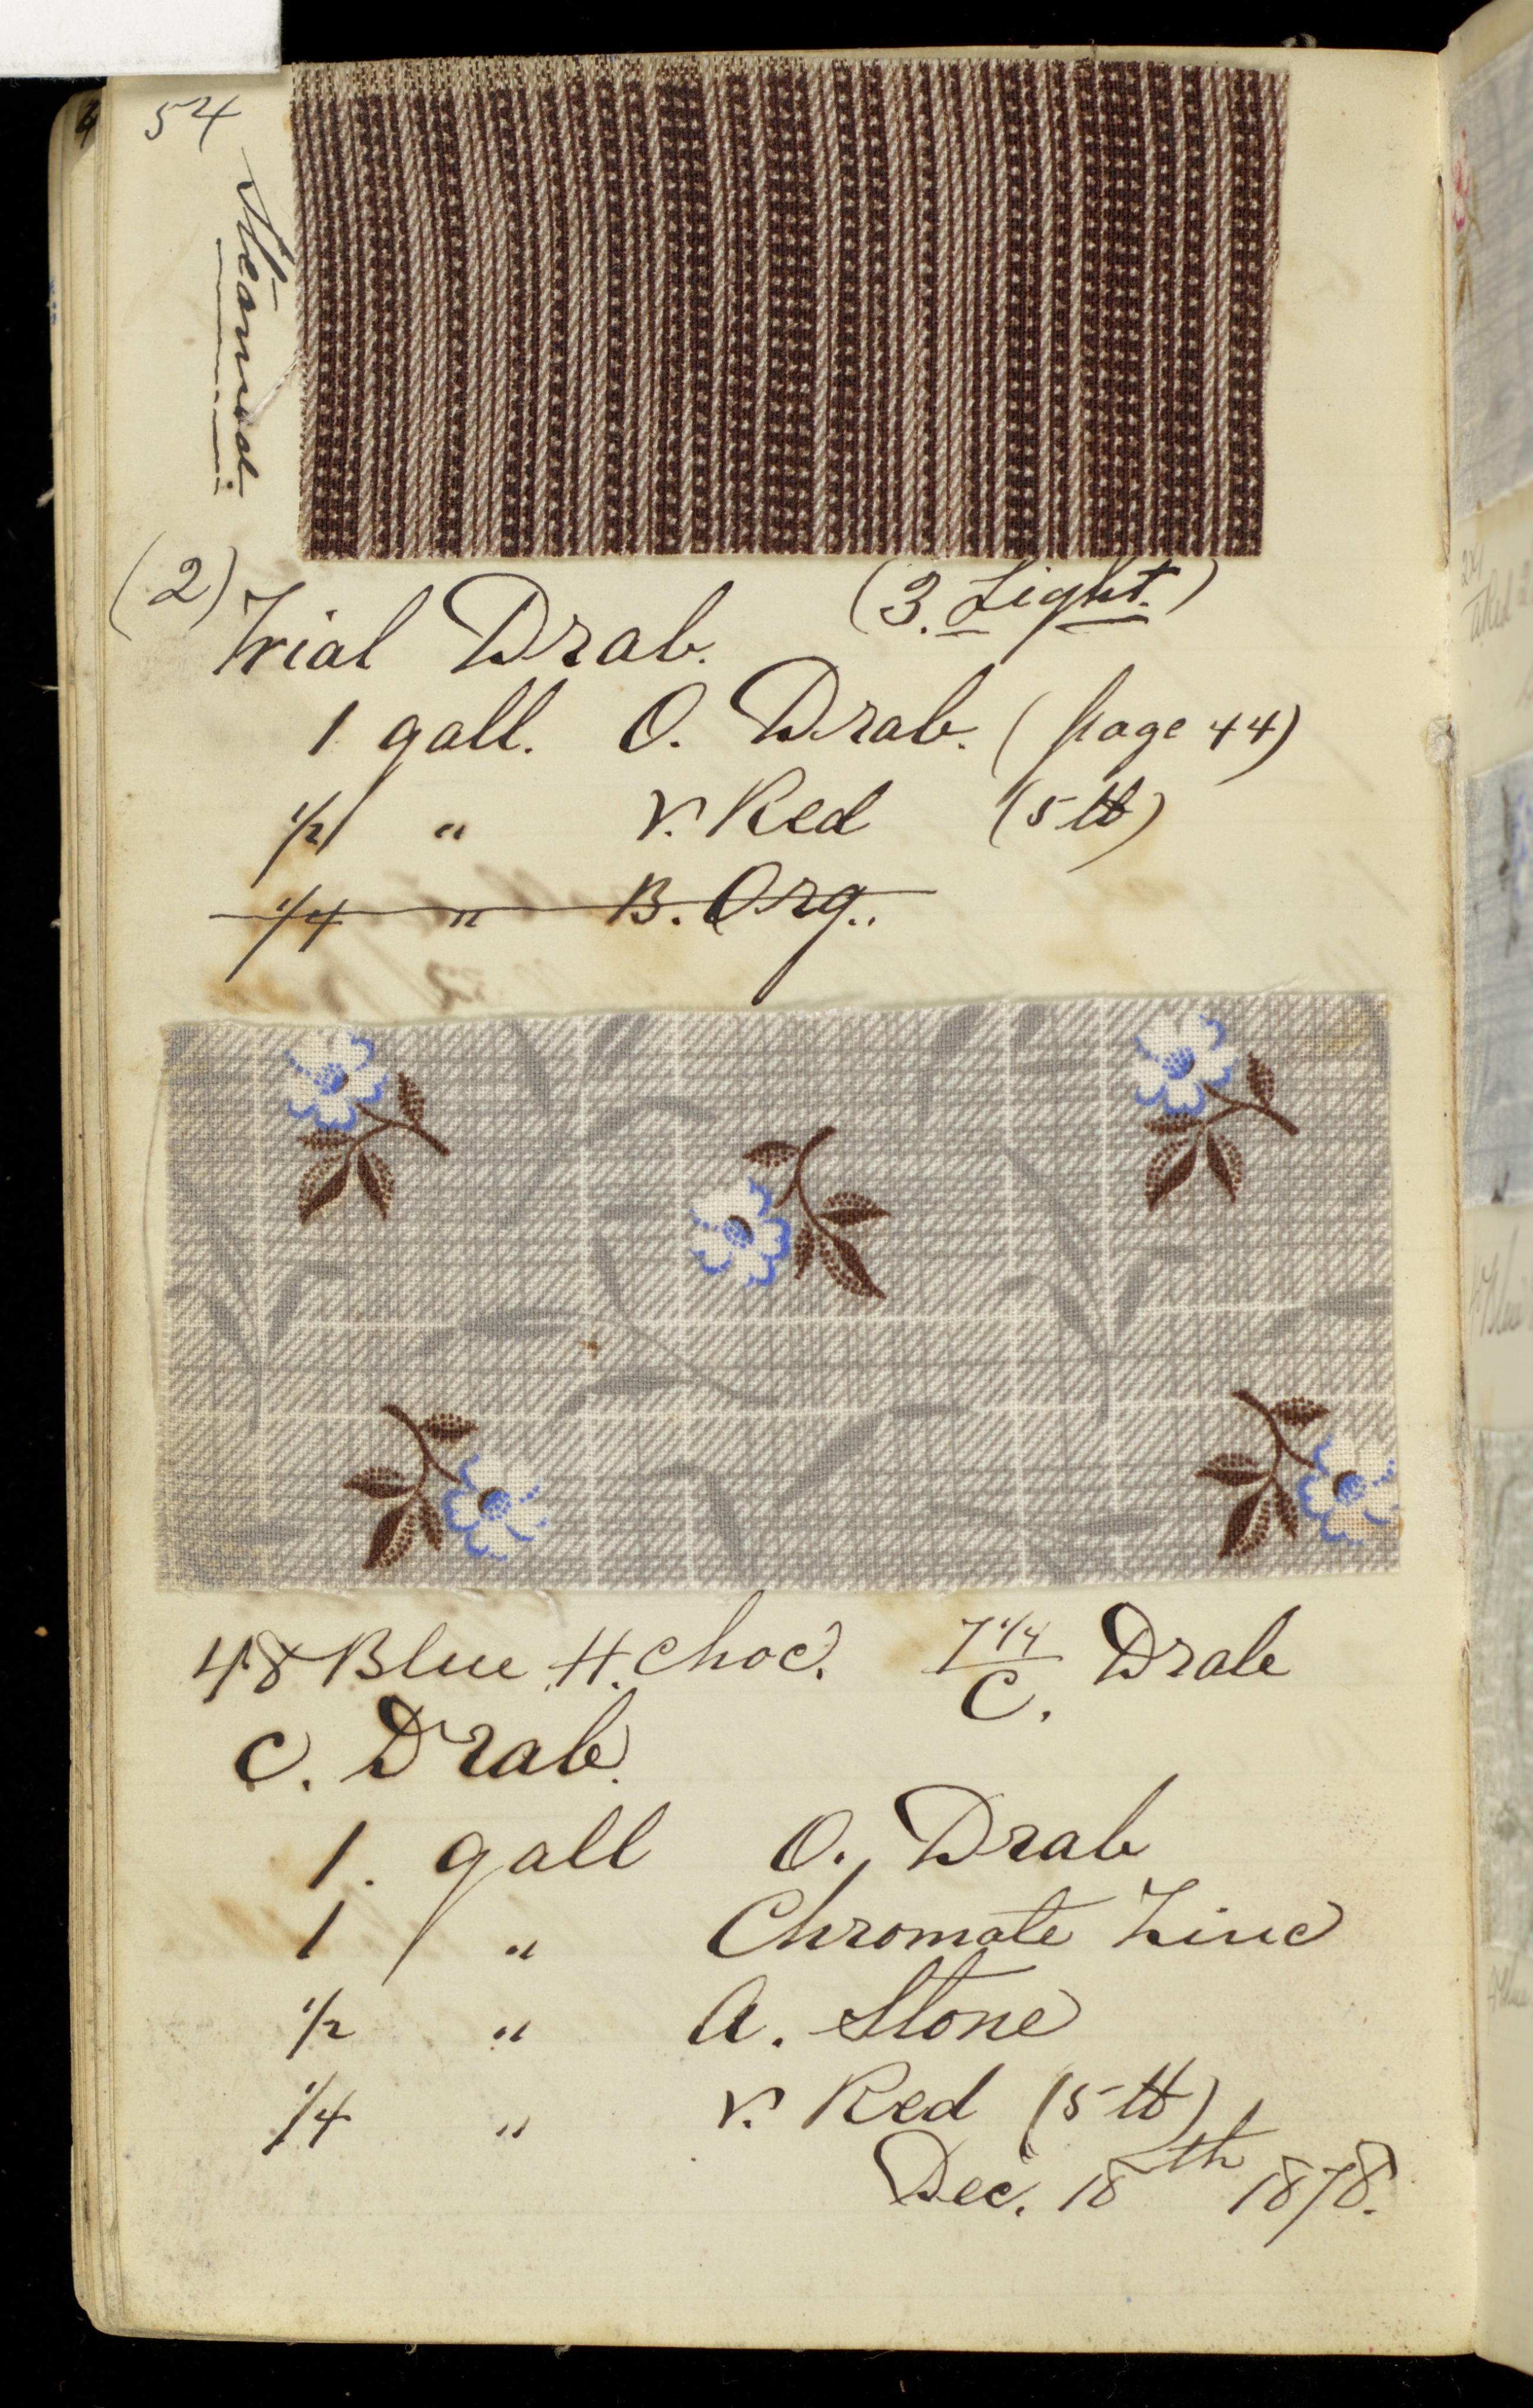 54
Steamed.
(2) Trial Drab. (3. Light.)
1 gall. O. Drab. (page 44)
1/2 " V. Red (5 lb)
1/4 " B. Org..
48 Blue H. Choc. 7 1/4 / C. Drab
C. Drab.
1. gall O. Drab
1 " Chromate Zinc
1/2 " A. Stone
1/4 " V. Red (5 lb)
Dec. 18th 1878.